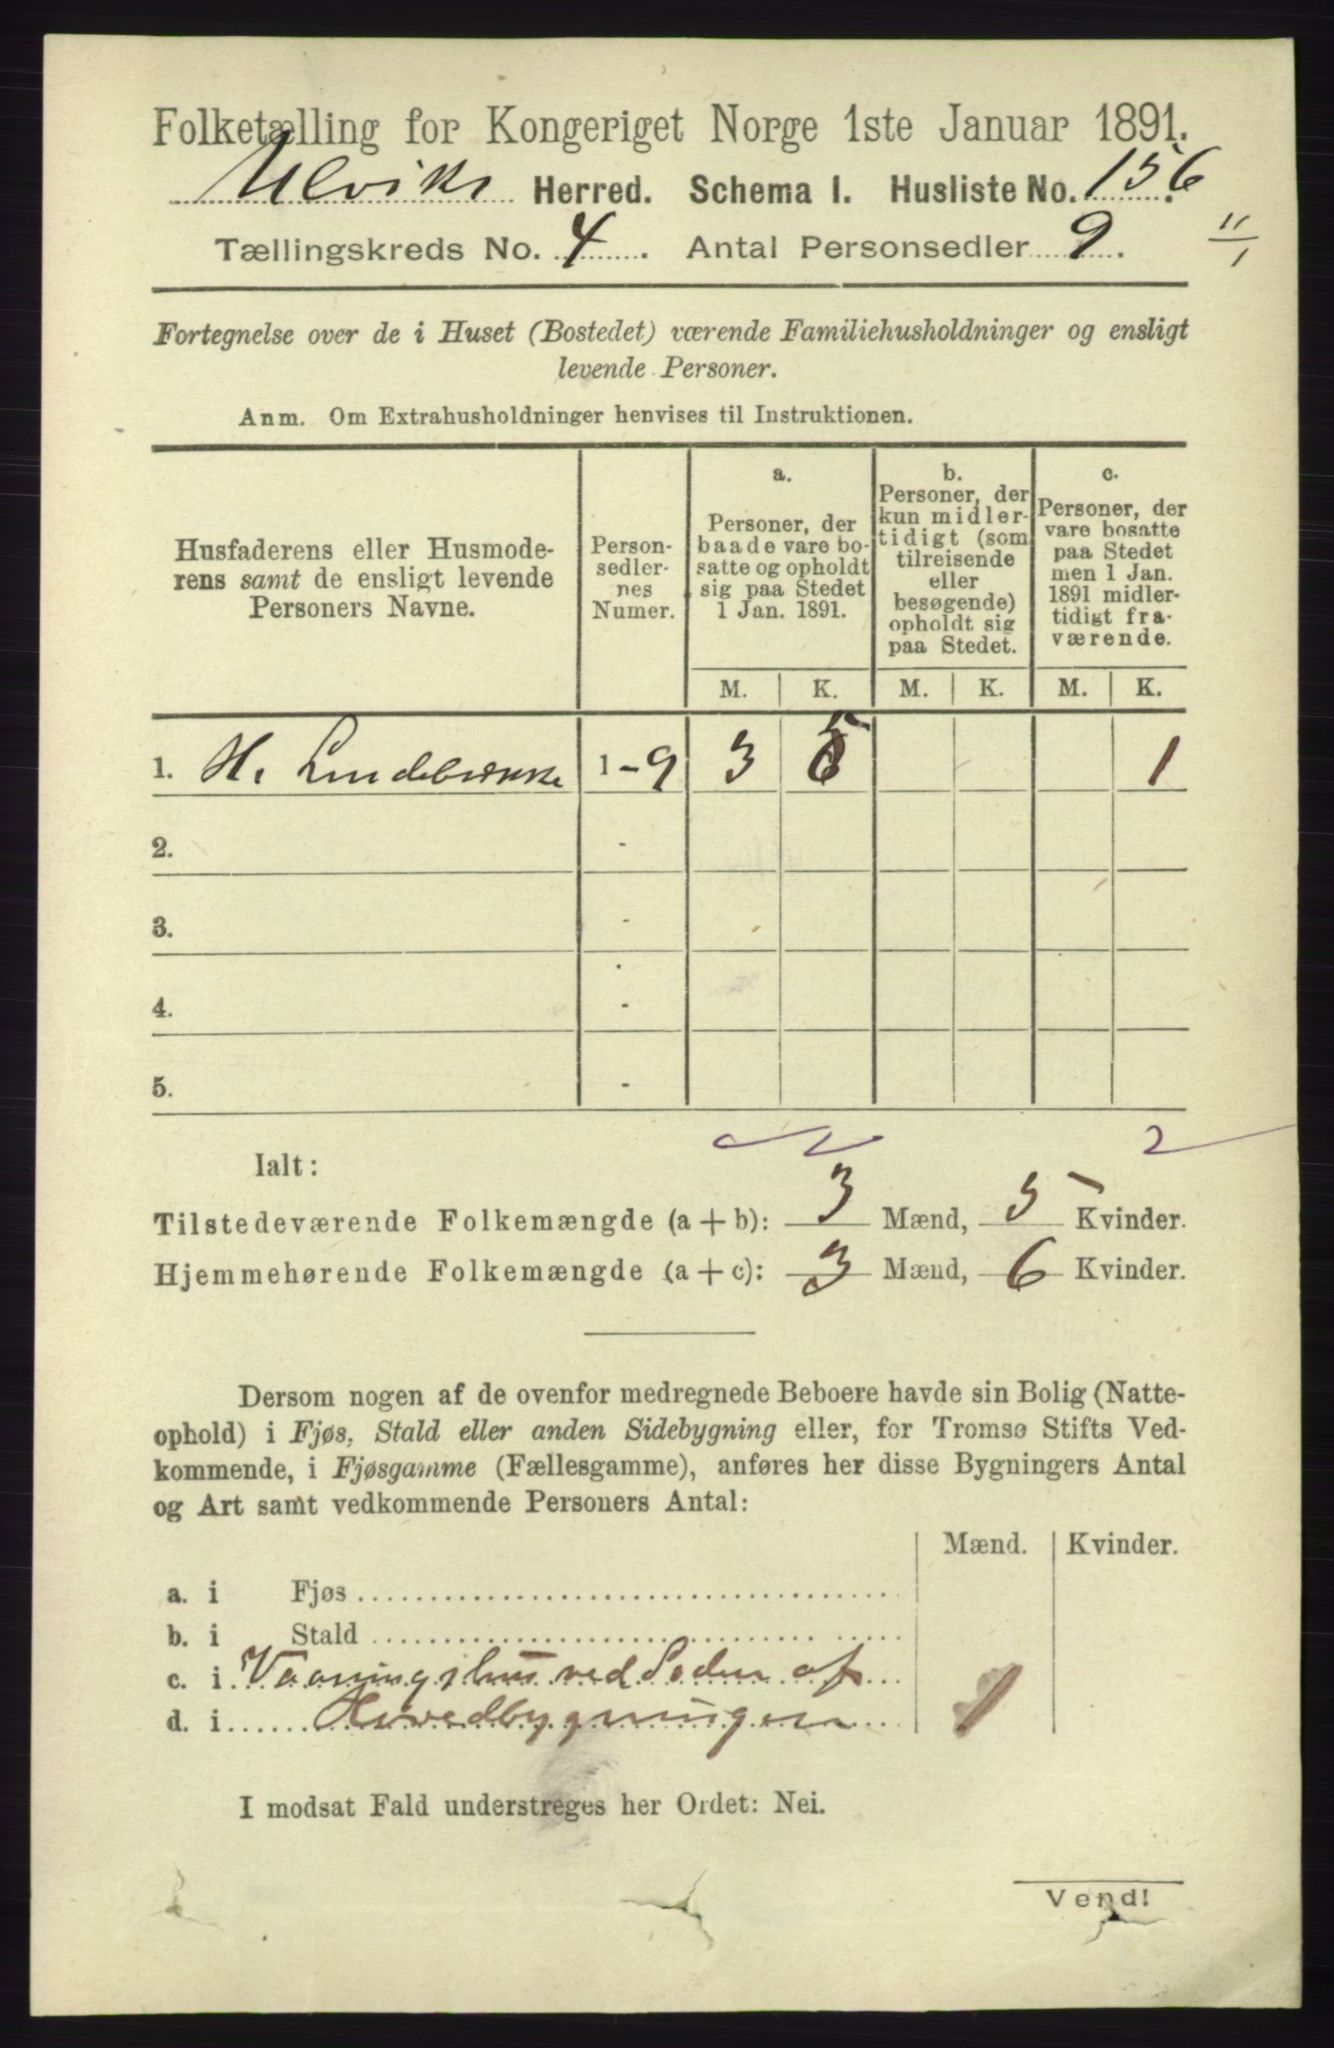 Folketælling for Kongeriget Norge 1ste Januar 1891.
Ulviks Herred. Schema I. Husliste No. 156
Tællingskreds No. 4. Antal Personsedler 9. 11/1
Fortegnelse over de i Huset (Bostedet) værende Familiehusholdninger og ensligt
levende Personer.
Anm. Om Extrahusholdninger henvises til Instruktionen.
Husfaderens eller Husmode-
rens samt de ensligt levende
Personers Navne.
Person-
sedler-
nes
Numer.
a.
Personer, der
baade vare bo-
satte og opholdt
sig paa Stedet
1 Jan. 1891.
b.
Personer, der
kun midler-
tidigt (som
tilreisende
eller
besøgende)
opholdt sig
paa Stedet.
c.
Personer, der
vare bosatte
paa Stedet
men 1 Jan.
1891 midler-
tidigt fra-
værende.
M. K. M. K. M. K.
1. H. Lindebrække 1-9 3 5 1
2. -
3. -
4. -
5. -
2
Ialt:
Tilstedeværende Folkemængde (a+b): 3 Mænd, 5 Kvinder.
Hjemmehørende Folkemængde (a+c): 3 Mænd, 6 Kvinder.
Dersom nogen af de ovenfor medregnede Beboere havde sin Bolig (Natte-
ophold) i Fjøs, Stald eller anden Sidebygning eller, for Tromsø Stifts Ved-
kommende, i Fjøsgamme (Fællesgamme), anføres her disse Bygningers Antal
og Art samt vedkommende Personers Antal:
Mænd. Kvinder.
a. i Fjøs
b. i Stald
c. i Vaaningshus ved Siden af
d. i Hovedbygningen 1
I modsat Fald understreges her Ordet: Nei.
Vend!